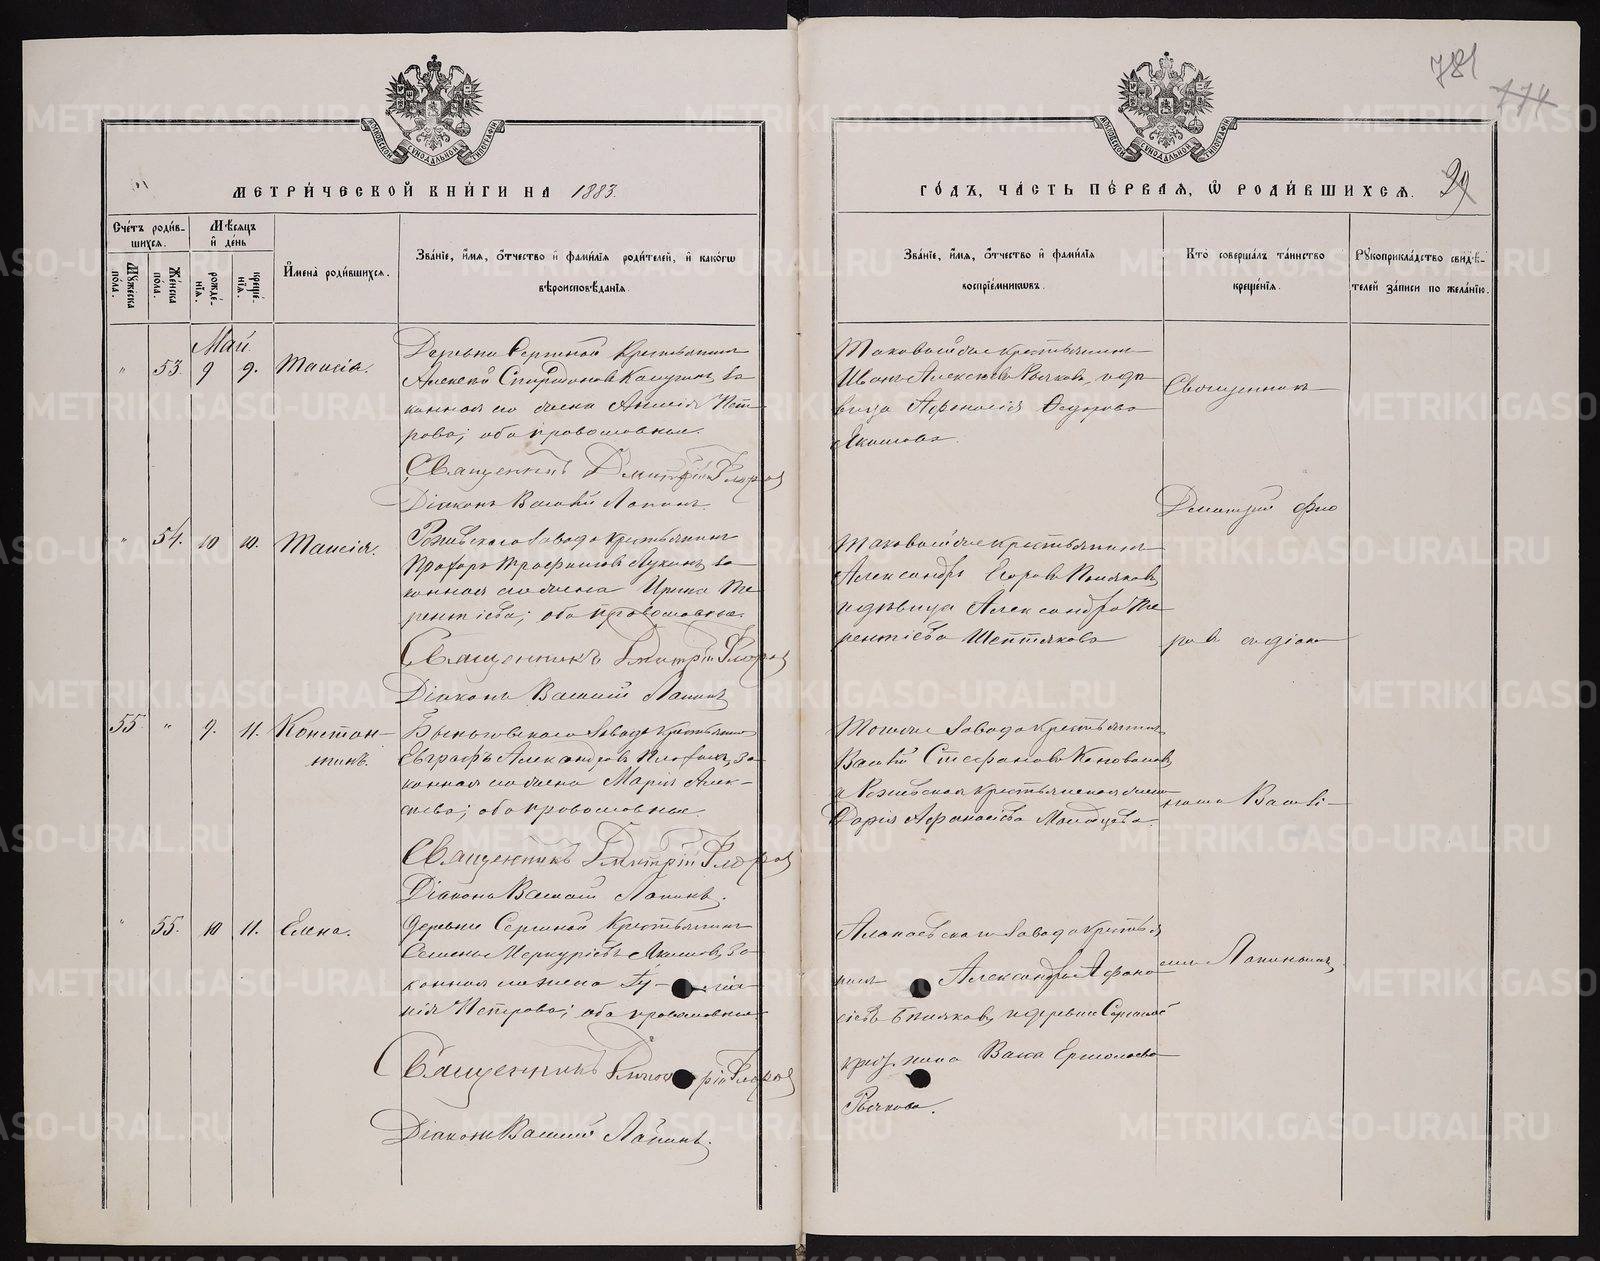 781
774
МОСКОВСКОЙ СУНОДАЛЬНОЙ ТИПОГРАФІИ
МОСКОВСКОЙ СУНОДАЛЬНОЙ ТИПОГРАФІИ
МЕТРИ́ЧЕСКОЙ КНИ́ГИ НА 1883.
ГО́ДЪ, ЧА́СТЬ ПЕ́РВАЯ, Ѡ РОДИ́ВШИХСЯ. 29
Сче́тъ роди́в-
шихся.
Мѣсяцъ
и де́нь
Му́жеска пола.
Же́нска пола.
рожде́-
нїя.
креще́-
нїя.
Имена̀ роди́вшихся.
Зва́нїе, и́мя, о́тчество и фами́лїя роди́телей, и како́гѡ
вѣроисповѣ́данїя.
Зва́нїе, и́мя, о́тчество и фами́лїя
воспрїе́мниковъ.
Кто̀ соверша́лъ та́инство
креще́нїя.
Рукоприкла́дство свидѣ́-
телей за́писи по жела́нїю.
Май
" 53. 9 9. Таисія.
Деревни Сергиной крестьянинъ
Алексѣй Спиридоновъ Калугинъ, за
конная его жена Анисія Пет
рова; оба православные.
Священникъ Димитрій Флоров
Діаконъ Василій Лапинъ.
Таковой же крестьянинъ
Иванъ Алексѣевъ Рычковъ, и дѣ
вица Афонасія Федорова
Якимова.
Священникъ
Дмитрий Фло
" 54. 10 10. Таисія.
Режевскаго завода крестьянинъ
Прохоръ Трофимовъ Лукинъ, за
конная его жена Ирина Те
рентіева; оба православные.
Священникъ Дмитрій Флоров
Діаконъ Василій Лапинъ
Таковой же крестьянинъ
Александръ Егоровъ Поляковъ,
и дѣвица Александра Те
рентіева Шептякова
ровъ съ діако
55. " 9. 11. Констан-
тинъ.
Быньговскаго завода крестьянинъ
Евграфъ Александровъ за
конная его жена Марія Алек-
сѣева; оба православные.
Священникъ Дмитрій Флоров
Діаконъ Василій Лапинъ.
Тогоже завода крестьянинъ
Василій Стефановъ Коноваловъ,
и Режевская крестьянская жена
Дарія Афанасіева
номъ Василі-
" 55. 10 11. Елена.
Деревни Сергиной Крестьянинъ
Семенъ Меркуріевъ Якимовъ, за
конная его жена
нія Петрова; оба православные
Священникъ Дмитрій Флоров
Діаконъ Василій Лапинъ.
Алапаевскаго завода крестья
нинъ Александръ Афана
сіевъ и деревни Сергиной
жена Ермолаева
Рычкова.
емъ Лапинымъ.
METRIKI.GASO-URAL.RU